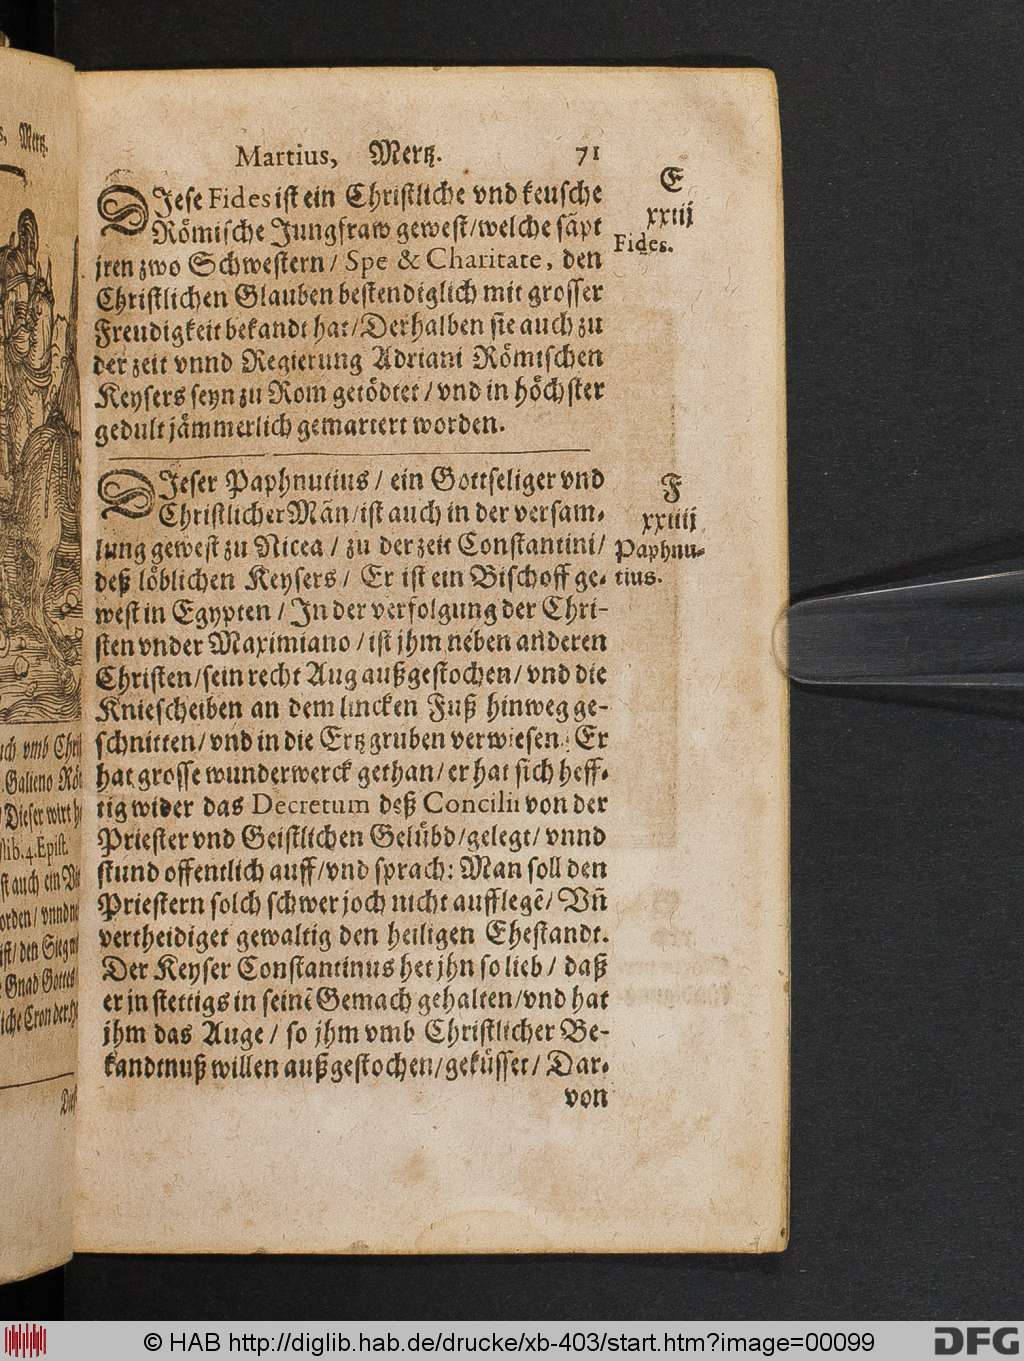 Martius, Mertz. 71
DIese Fides ist ein Christliche vnd keusche
Römische Jungfraw gewest/welche sãpt
jren zwo Schwestern/ Spe & Charitate, den
Christlichen Glauben bestendiglich mit grosser
Freudigkeit bekandt hat/Derhalben sie auch zu
der zeit vnnd Regierung Adriani Römischen
Keysers seyn zu Rom getödtet/vnd in höchster
gedult jämmerlich gemartert worden.
E
xxiij
Fides.
DIeser Paphnutius/ ein Gottseliger vnd
Christlicher Mãn/ist auch in der versam-
lung gewest zu Nicea/ zu der zeit Constantini/
deß löblichen Keysers/ Er ist ein Bischoff ge-
west in Egypten/ In der verfolgung der Chri-
sten vnder Maximiano/ist jhm neben anderen
Christen/sein recht Aug außgestochen/vnd die
Kniescheiben an dem lincken Fuß hinweg ge-
schnitten/vnd in die Ertzgruben verwiesen. Er
hat grosse wunderwerck gethan/er hat sich heff-
tig wider das Decretum deß Concilii von der
Priester vnd Geistlichen Gelübd/gelegt/ vnnd
stund offentlich auff/vnd sprach: Man soll den
Priestern solch schwer joch nicht aufflegẽ/ Vñ
vertheidiget gewaltig den heiligen Ehestandt.
Der Keyser Constantinus het jhn so lieb/ daß
er jn stettigs in seinẽ Gemach gehalten/vnd hat
jhm das Auge/ so jhm vmb Christlicher Be-
kandtnuß willen außgestochen/geküsset/ Dar-
von
F
xxiiij
Paphnu-
tius.
s, Mertz.
uch vmb Chri
Galieno Rö
/Dieser wirt h
lib.4.Epist.
st auch ein
orden/vnnd
ist/den Sieg
Gnad Gottes
liche Cron der
© HAB http://diglib.hab.de/drucke/xb-403/start.htm?image=00099
DFG